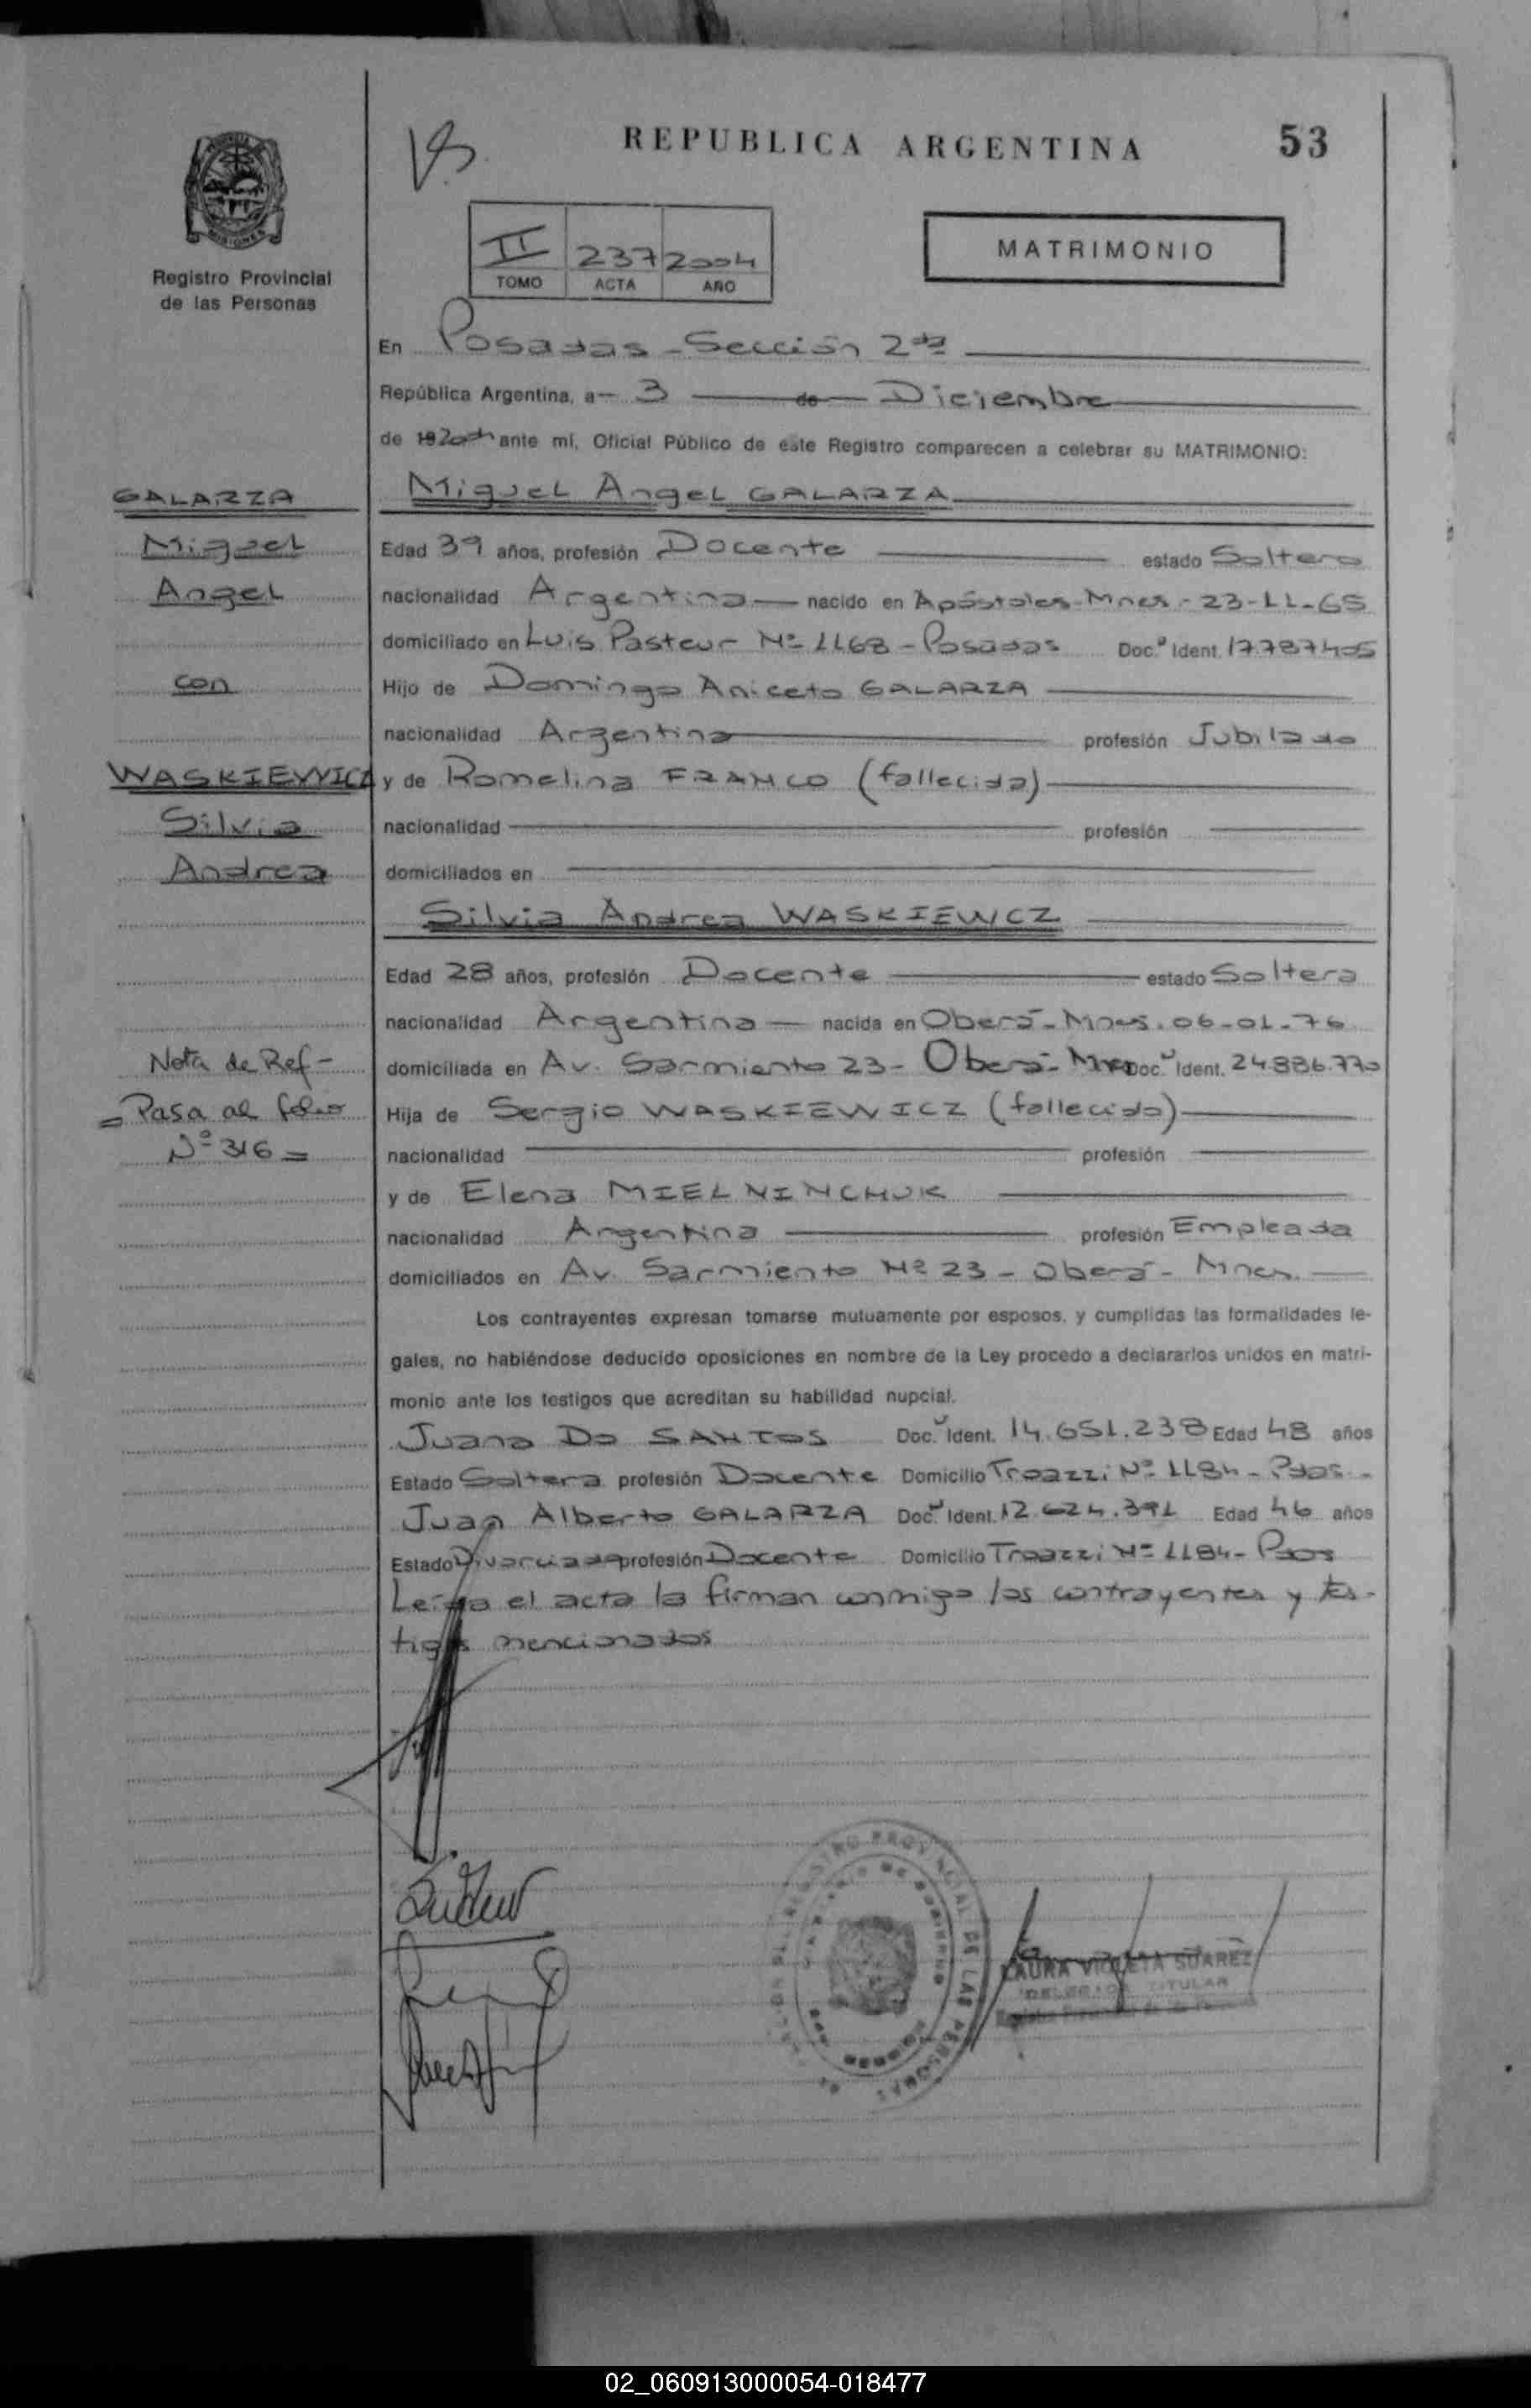 REPUBLICA ARGENTINA
53
Registro Provincial
de las Personas
II 237 2004
TOMO ACTA AÑO
MATRIMONIO
En Posadas - Sección 2da
República Argentina, a 3 de Diciembre
de 2004 ante mí, Oficial Público de este Registro comparecen a celebrar su MATRIMONIO:
GALARZA
Miguel
Angel
con
WASKIEWICZ
Silvia
Andrea
Nota de Ref-
= Pasa al folio
Nº 316 =
Miguel Angel GALARZA
Edad 39 años, profesión Docente estado Soltero
nacionalidad Argentina nacido en Apóstoles - Mnes - 23-11-65
domiciliado en Luis Pasteur Nº 1168 - Posadas Doc. Ident. 17.787.405
Hijo de Domingo Aniceto GALARZA
nacionalidad Argentina profesión Jubilado
y de Romelina FRANCO (fallecida)
nacionalidad profesión
domiciliados en
Silvia Andrea WASKIEWCZ
Edad 28 años, profesión Docente estado Soltera
nacionalidad Argentina nacida en Oberá - Mnes. 06-01-76
domiciliada en Av. Sarmiento 23 - Oberá - Doc. Ident. 24.886.770
Hija de Sergio WASKIEWICZ (fallecido)
nacionalidad profesión
y de Elena MIELNINCHUK
nacionalidad Argentina profesión Empleada
domiciliados en Av. Sarmiento Nº 23 - Oberá - Mnes.
Los contrayentes expresan tomarse mutuamente por esposos, y cumplidas las formalidades le-
gales, no habiéndose deducido oposiciones en nombre de la Ley procedo a declararlos unidos en matri-
monio ante los testigos que acreditan su habilidad nupcial.
Juana Do SANTOS Doc. Ident. 14.651.238 Edad 48 años
Estado Soltera profesión Docente Domicilio Troazzi Nº 1184 - Pdas -
Juan Alberto GALARZA Doc. Ident. 12.624.391 Edad 46 años
Estado Divorciado profesión Docente Domicilio Troazzi Nº 1184 - Pdas
Leída el acta la firman conmigo los contrayentes y tes-
tigos mencionados
REGISTRO PROVINCIAL DE LAS PERSONAS
LAURA VIOLETA SUAREZ
TITULAR
02_060913000054-018477